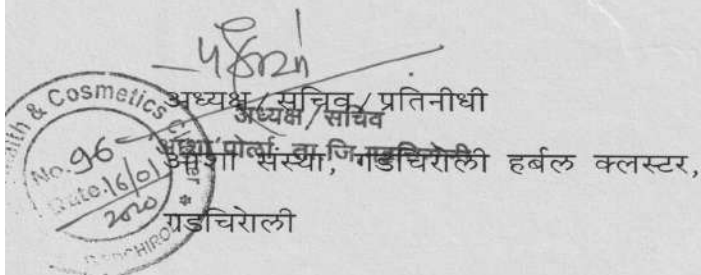 अध्यक्ष / सचिव / प्रतिनीधी
अध्यक्ष / सचिव
आशा संस्था, गडचिरोली हर्बल क्लस्टर,
गडचिरोली
Health & Cosmetics Cluster
No. 96
Date. 16/01/
2020